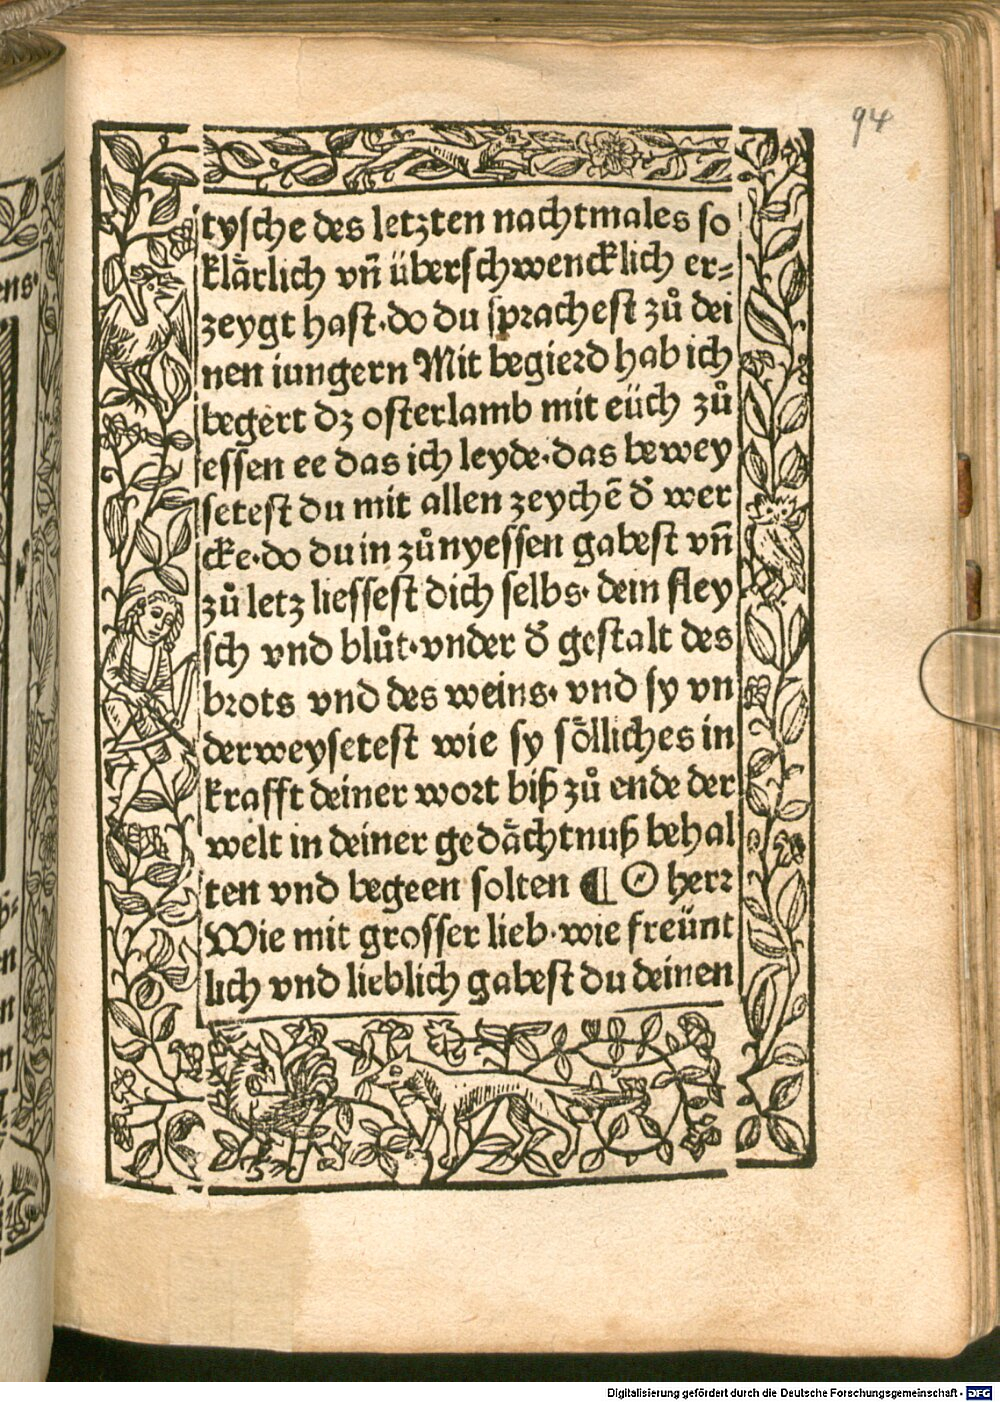 94
tysche des letzten nachtmales so
klårlich vñ überschwencklich er=
zeygt hast·do du sprachest zů dei
nen iungern Mit begierd hab ich
begert dz osterlamb mit eüch zů
essen ee das ich leyde·das bewey
setest du mit allen zeychē d̄ wer
cke·do du in zůnyessen gabest vñ
zů letz liessest dich selbs· dein fley
sch vnd blůt·vnder d̄ gestalt des
brots vnd des weins· vnd sy vn
derweysetest wie sy sölliches in
krafft deiner wort biß zů ende der
welt in deiner gedächtnuß behal
ten vnd begeen solten ¶ O herr
Wie mit grosser lieb·wie freünt
lich vnd lieblich gabest du deinen
Digitalisierung gefördert durch die Deutsche Forschungsgemeinschaft - DFG